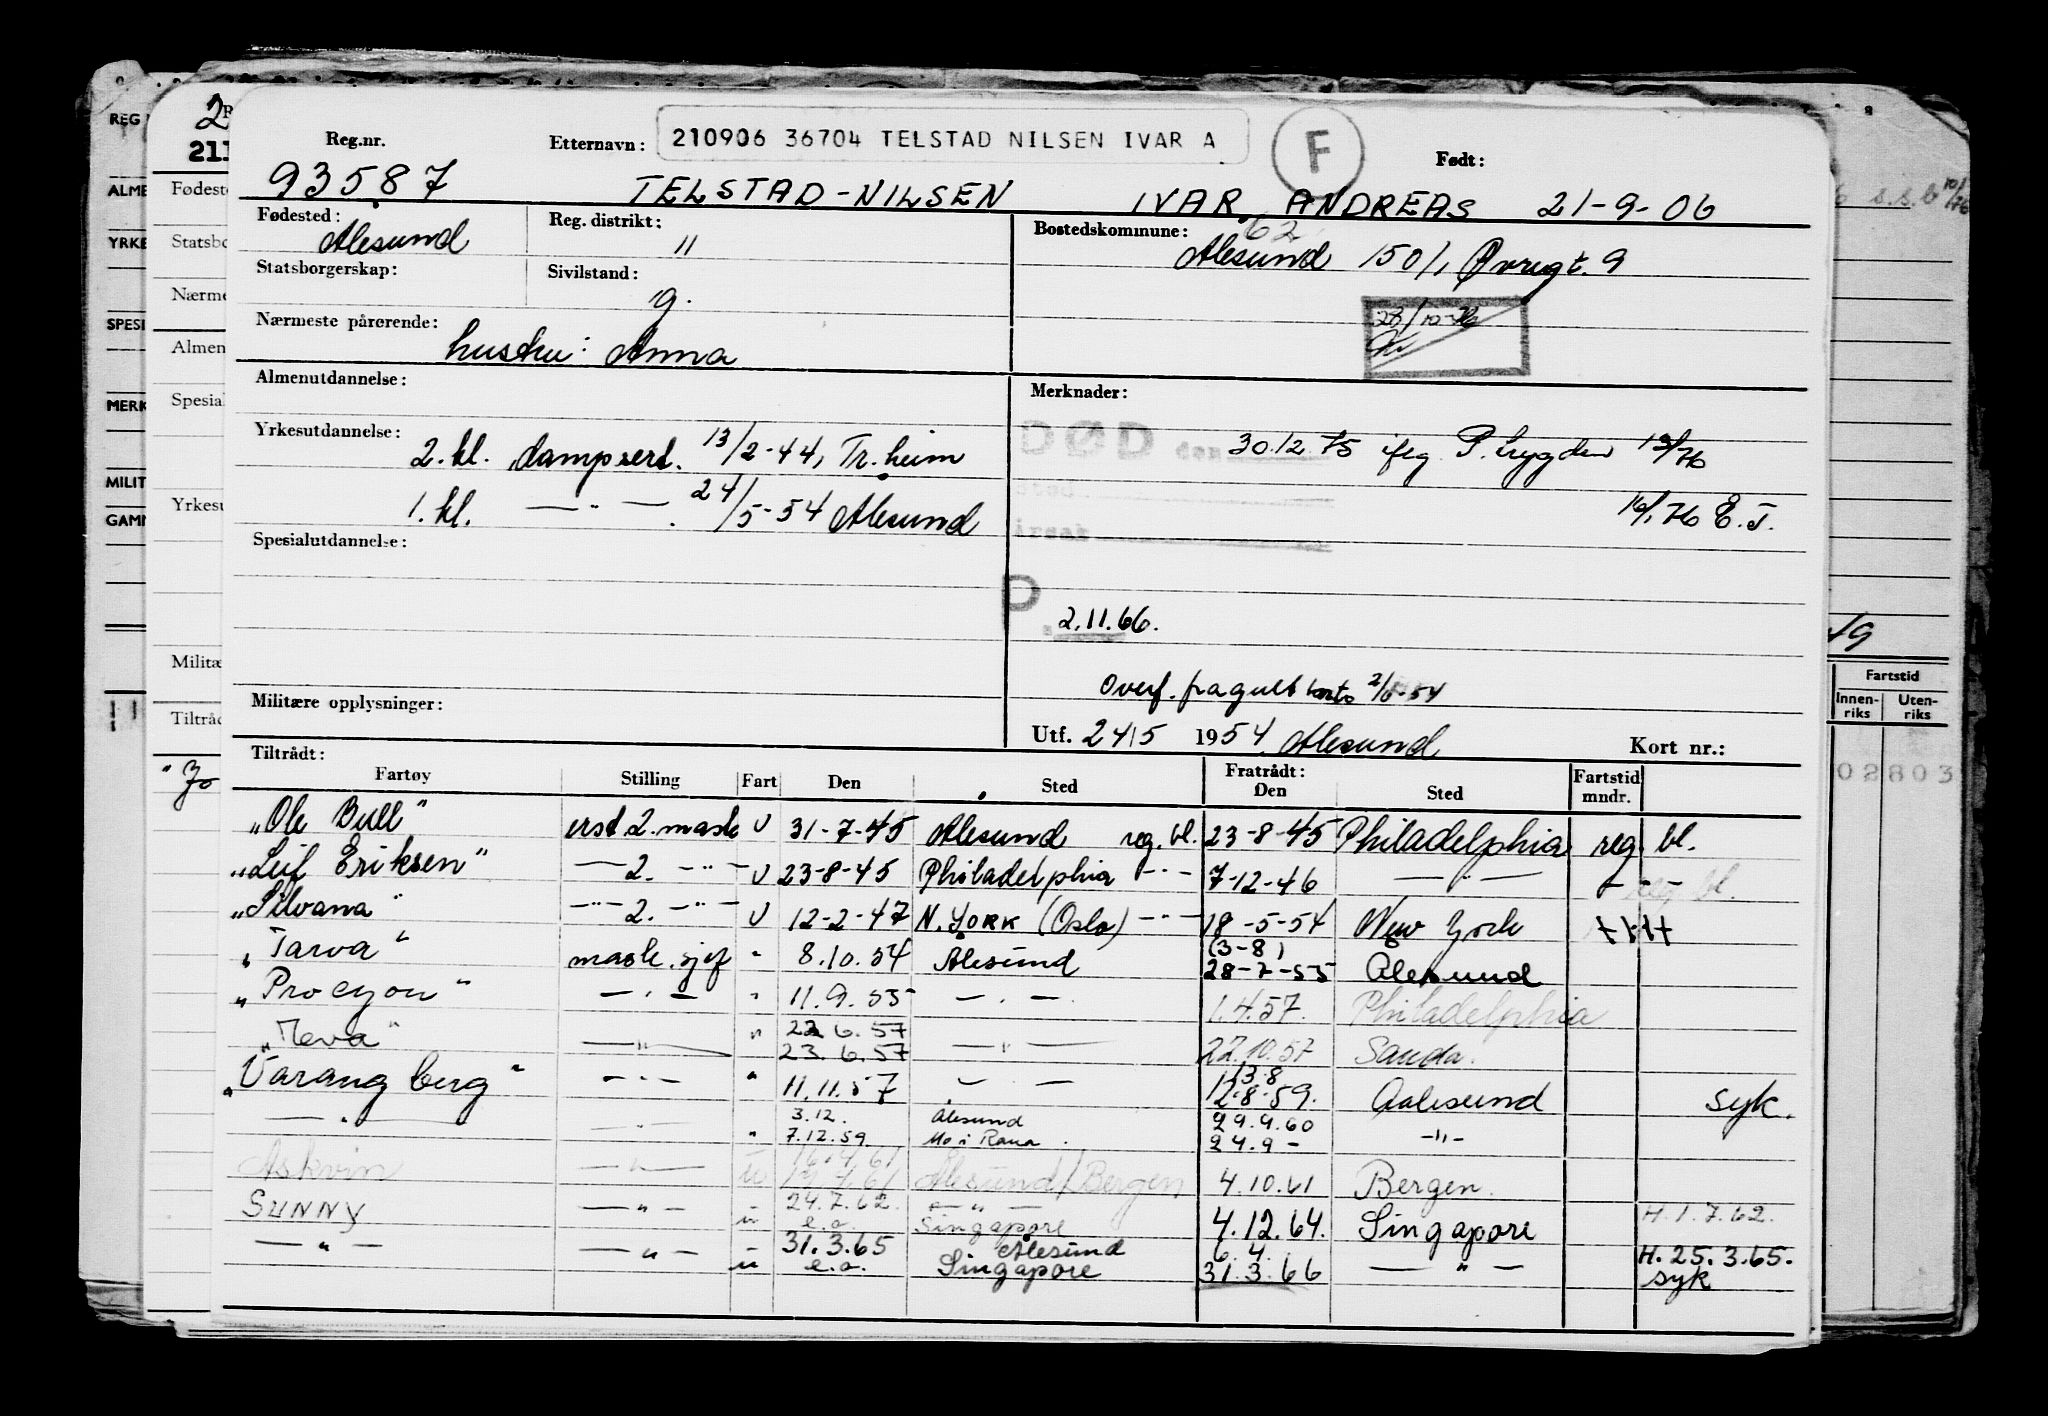 210906 36704 TELSTAD NILSEN IVAR A
F
Reg.nr. Etternavn: Født:
93587 TELSTAD-NILSEN IVAR ANDREAS 21-9-06
Fødested: Reg. distrikt: Bostedskommune: 62
Ålesund 11 Ålesund 1501, Øvregt. 9
Statsborgerskap: Sivilstand:
g.
Nærmeste pårørende:
hustru: Anna
28/10-76
Almenutdannelse: Merknader:
Yrkesutdannelse: DØD den 30.12.75 ifg. P. trygden 13/1 76
2. kl. dampsert. 13/2-44, Tr.heim
1. kl. —"— 24/5-54 Ålesund
16/1 76 E. T.
årsak
Spesialutdannelse:
2.11.66.
Overf. fra gult korts 2/6-54
Militære opplysninger:
Utf. 24/5 1954 Ålesund Kort nr.:
Tiltrådt: Fratrådt: Fartstid
Fartøy Stilling Fart Den Sted Den Sted mndr.
"Ole Bull" erst 2. mask U 31-7-45 Ålesund reg. bl. 23-8-45 Philadelphia reg. bl.
"Leif Eriksen" — 2. -"- U 23-8-45 Philadelphia -"- 7-12-46 —"— - reg. bl.
"Silvana" -"- 2. -"- U 12-2-47 N. YORK (Oslo) -"- 18-5-54 New York
(3-8)
"Tarva" mask. sjef " 8.10.54 Ålesund 28-7-55 Ålesund
"Procyon" —"— " 11.9.55 —"— 1.4.57. Philadelphia
22.6.57
"Meva" —"— " 23.6.57 —"— 22.10.57 Sauda.
13.8
"Varangberg" —"— " 11.11.57 —"— 12.8.59. Aalesund syk.
3.12. Ålesund 29.4.60
—"— " 7.12.59 Mo i Rana 24.9 - -"-
16.4.61
Askvin —"— u Ålesund/Bergen 4.10.61 Bergen.
24.7.62. —"—
SUNNY —"— u e.o. Singapore 4.12.64. Singapore H. 1.7.62.
31.3.65 Ålesund 6.4. H. 25.3.65.
—"— —"— u e.o. Singapore 31.3.66 —"— syk
Fartstid
Innen-riks Uten-riks
02803
REG
ALME
YRKE
SPESI
MERK
MILIT
GAMM
2
211
Fødeste
Statsbo
Nærme
Almen
Spesial
Yrkesu
Militæ
Tiltråd